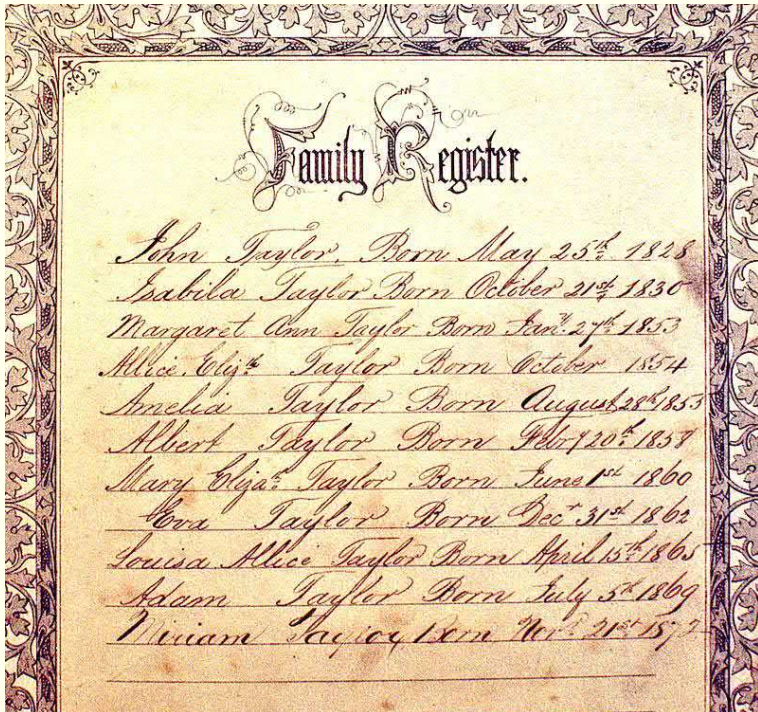 Family Register.
John Taylor. Born May 25th 1828
Isabila Taylor Born October 21st 1830
Margaret Ann Taylor Born Jany. 27th 1853
Allice Elizth Taylor Born October 1854
Amelia Taylor Born August 28th 1855
Albert Taylor Born Febry 20th 1858
Mary Elizath Taylor Born June 1st 1860
Eva Taylor Born Decr 31st 1862
Louisa Allice Taylor Born April 15th 1865
Adam Taylor Born July 5th 1869
Miriam Taylor Born Novr 21st 1872